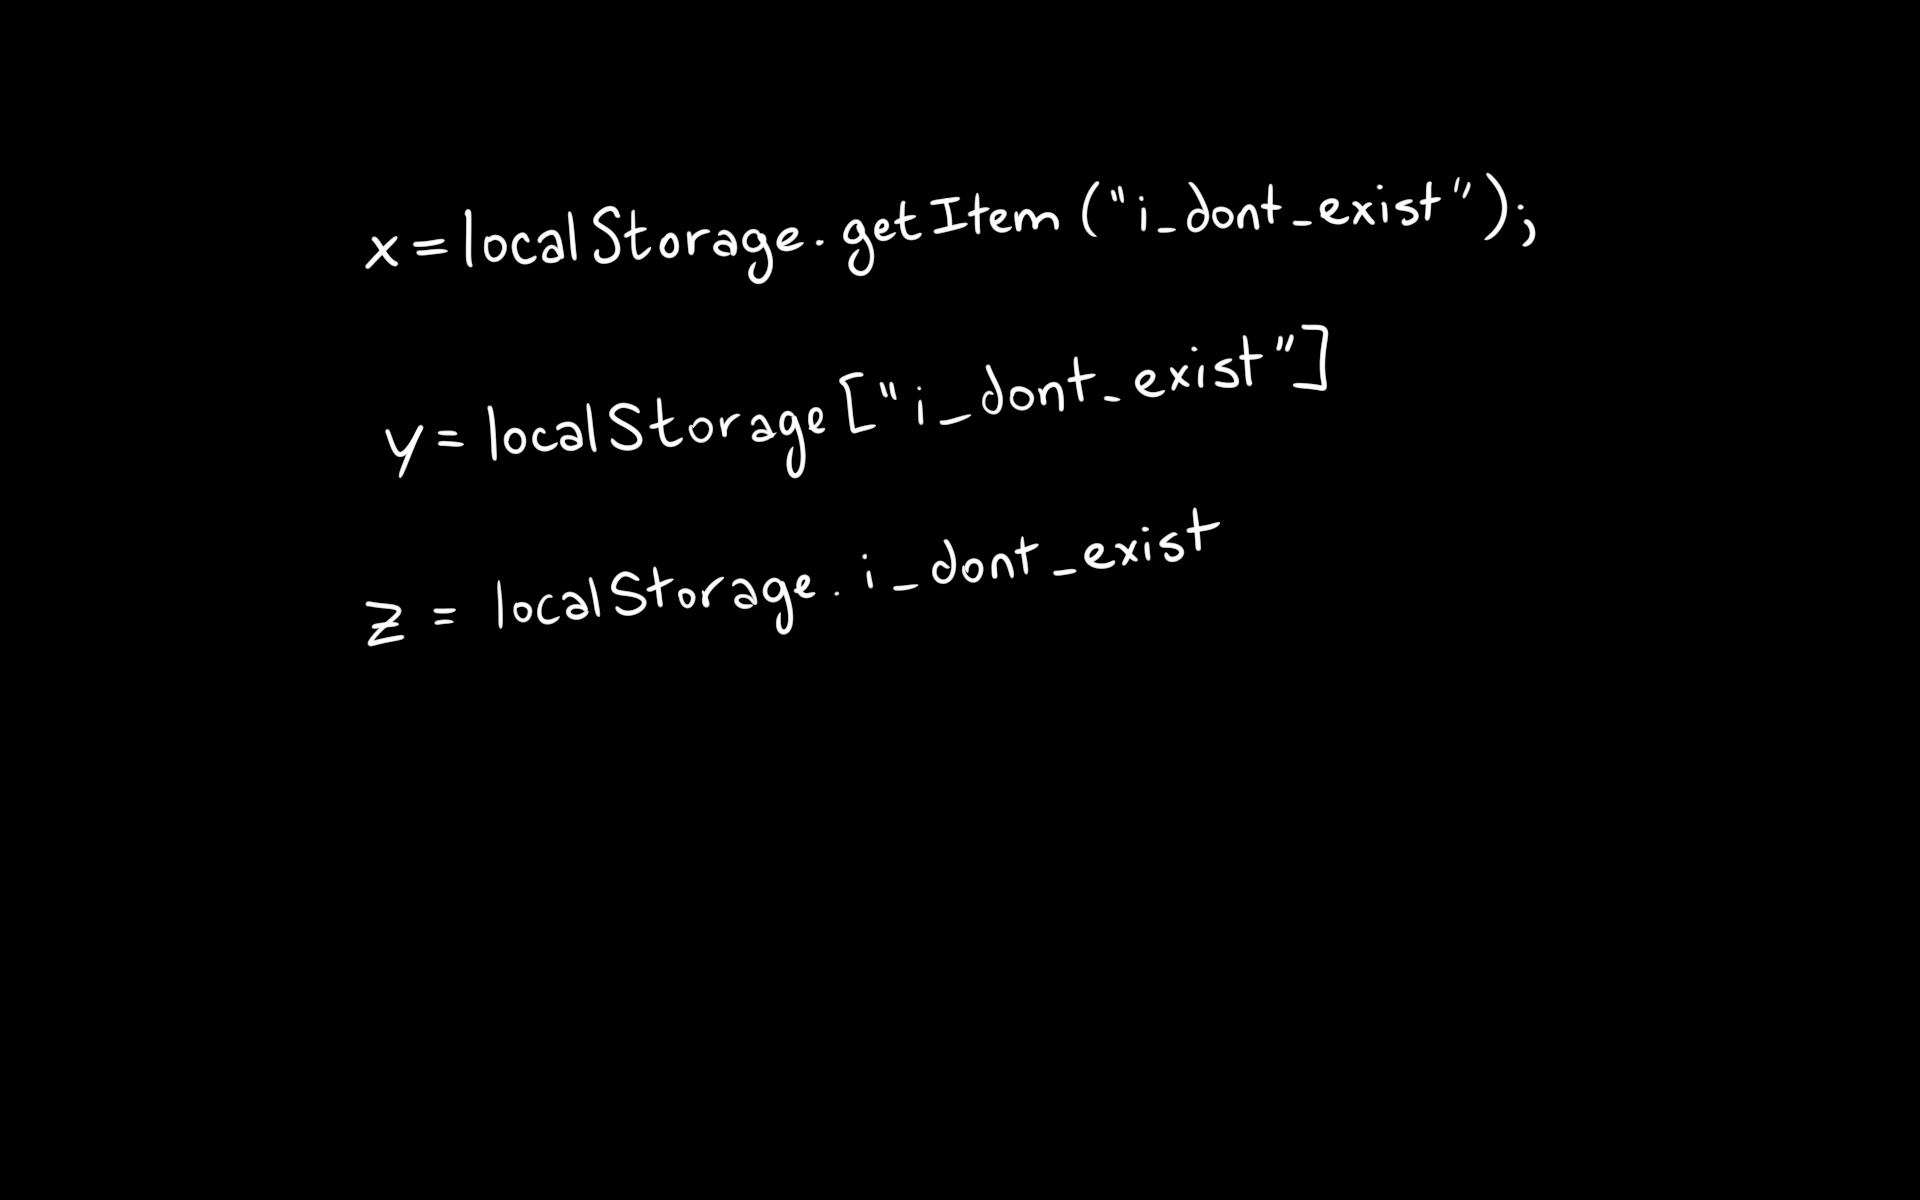 x = localStorage.getItem("i_dont_exist");
y = localStorage["i_dont_exist"]
z = localStorage.i_dont_exist